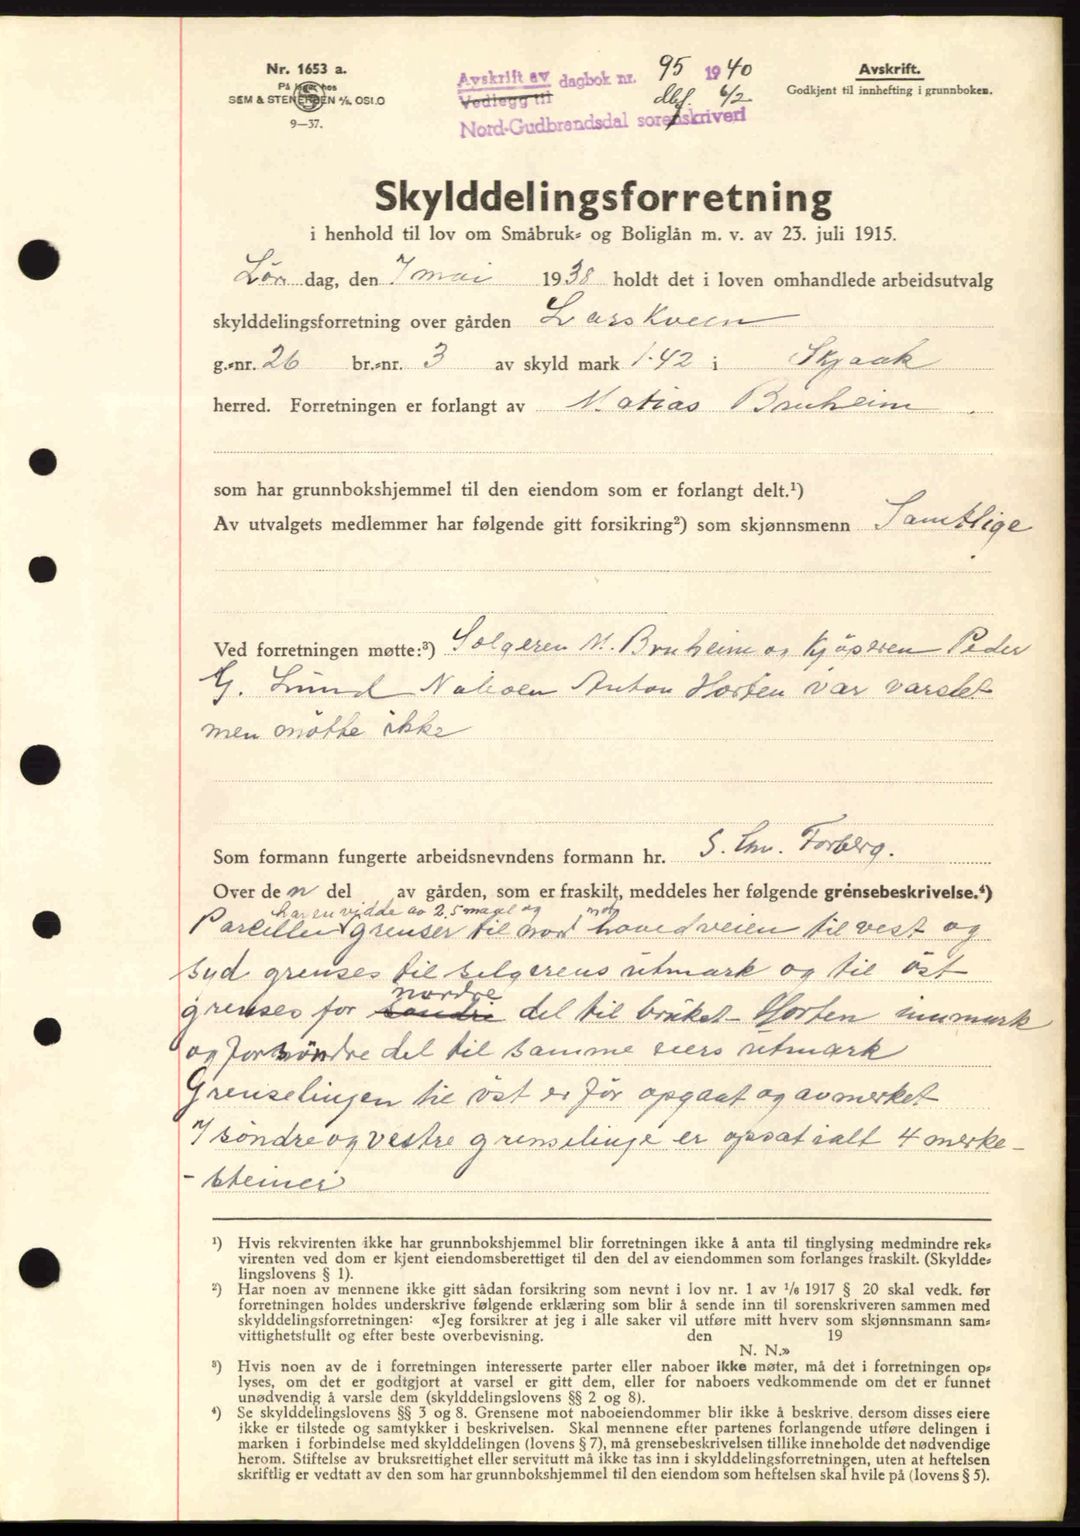 Nr. 1653 a.
På lager hos
SEM & STENERSEN A/S, OSLO
9—37.
Avskrift av dagbok nr. 95 1940
Vedlegg til dbf. 6/2
Nord-Gudbrandsdal sorenskriveri
Avskrift.
Godkjent til innhefting i grunnboken.
Skylddelingsforretning
i henhold til lov om Småbruk- og Boliglån m. v. av 23. juli 1915.
Lør dag, den 7 mai 1938 holdt det i loven omhandlede arbeidsutvalg
skylddelingsforretning over gården Larskveen
g.-nr. 26 br.-nr. 3 av skyld mark 1-42 i Skjaak
herred. Forretningen er forlangt av Matias Bruheim .
som har grunnbokshjemmel til den eiendom som er forlangt delt.¹)
Av utvalgets medlemmer har følgende gitt forsikring²) som skjønnsmenn Samtlige
Ved forretningen møtte:³) Selgeren M. Bruheim og kjöperen Peder
G. Lund Naboen Anton Horten var varslet
men mötte ikke
Som formann fungerte arbeidsnevndens formann hr. S. Chr. Forberg.
Over de n del av gården, som er fraskilt, meddeles her følgende grénsebeskrivelse.⁴)
har en vidde av 2.5 maal og
Parcellen grenser til nord mot hovedveien til vest og
syd grenses til selgerens utmark og til öst
grenses for söndre nordre del til bruket Horten innmark
og for söndre del til samme eiers utmark
Grenselinjen til öst er för opgaat og avmerket
I söndre og vestre grenselinje er opsat ialt 4 merke-
- steiner
¹) Hvis rekvirenten ikke har grunnbokshjemmel blir forretningen ikke å anta til tinglysing medmindre rek-
virenten ved dom er kjent eiendomsberettiget til den del av eiendommen som forlanges fraskilt. (Skyldde-
lingslovens § 1).
²) Har noen av mennene ikke gitt sådan forsikring som nevnt i lov nr. 1 av 1/6 1917 § 20 skal vedk. før
forretningen holdes underskrive følgende erklæring som blir å sende inn til sorenskriveren sammen med
skylddelingsforretningen: «Jeg forsikrer at jeg i alle saker vil utføre mitt hverv som skjønnsmann sam-
vittighetsfullt og efter beste overbevisning. den 19
N. N.»
³) Hvis noen av de i forretningen interesserte parter eller naboer ikke møter, må det i forretningen op-
lyses, om det er godtgjort at varsel er gitt dem, eller for naboers vedkommende om det er funnet
unødvendig å varsle dem (skylddelingslovens §§ 2 og 8).
⁴) Se skylddelingslovens §§ 3 og 8. Grensene mot naboeiendommer blir ikke å beskrive, dersom disses eiere
ikke er tilstede og samtykker i beskrivelsen. Skal mennene efter partenes forlangende utføre delingen i
marken i forbindelse med skylddelingen (lovens § 7), må grensebeskrivelsen tillike inneholde det nødvendige
herom. Stiftelse av bruksrettighet eller servitutt må ikke tas inn i skylddelingsforretningen, uten at heftelsen
skriftlig er vedtatt av den som har grunnbokshjemmel til den eiendom som heftelsen skal hvile på (lovens § 5).